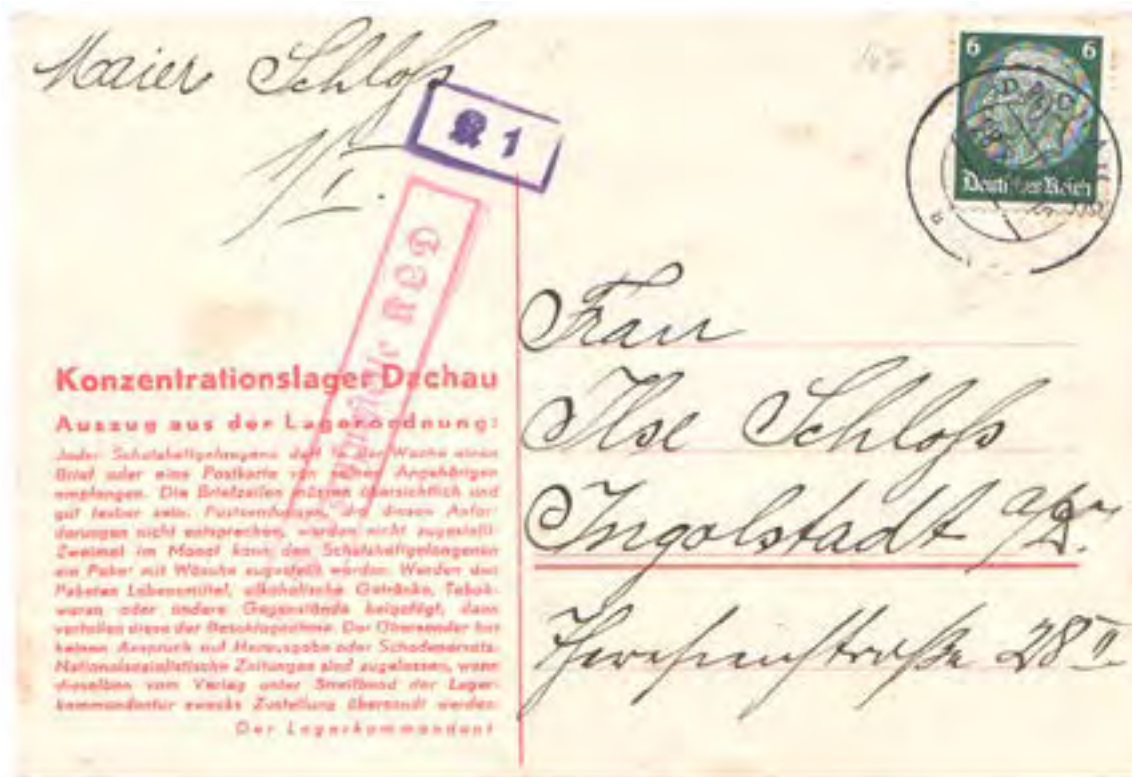 Maier Schloß
1/I.
K 1
6 6
Deutsches Reich
Frau
Ilse Schloß
Ingolstadt a/D.
Theresienstraße 28 II.
Konzentrationslager Dachau
Auszug aus der Lagerordnung:
Jeder Schutzhaftgefangene darf in der Woche einen
Brief oder eine Postkarte von seinen Angehörigen
empfangen. Die Briefzeilen müssen übersichtlich und
gut lesbar sein. Postsendungen, die diesen Anfor-
derungen nicht entsprechen, werden nicht zugestellt.
Zweimal im Monat kann den Schutzhaftgefangenen
ein Paket mit Wäsche zugestellt werden. Werden den
Paketen Lebensmittel, alkoholische Getränke, Tabak-
waren oder andere Gegenstände beigefügt, dann
verfallen diese der Beschlagnahme. Der Übersender hat
keinen Anspruch auf Herausgabe oder Schadenersatz.
Nationalsozialistische Zeitungen sind zugelassen, wenn
dieselben vom Verlag unter Streifband der Lager-
kommandantur zwecks Zustellung übersandt werden.
Der Lagerkommandant